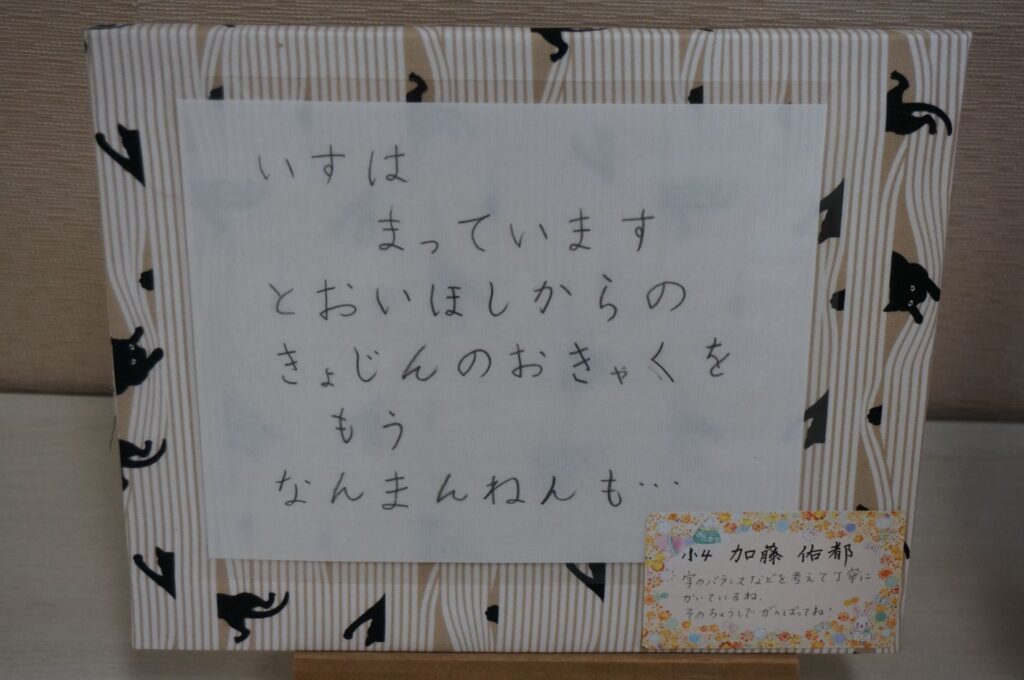 いすは
まっています
とおいほしからの
きょじんのおきゃくを
もう
なんまんねんも…
小4 加藤 佑都
字のバランスなどを考えて丁寧に
かいているね。
そのちょうしでがんばってね!